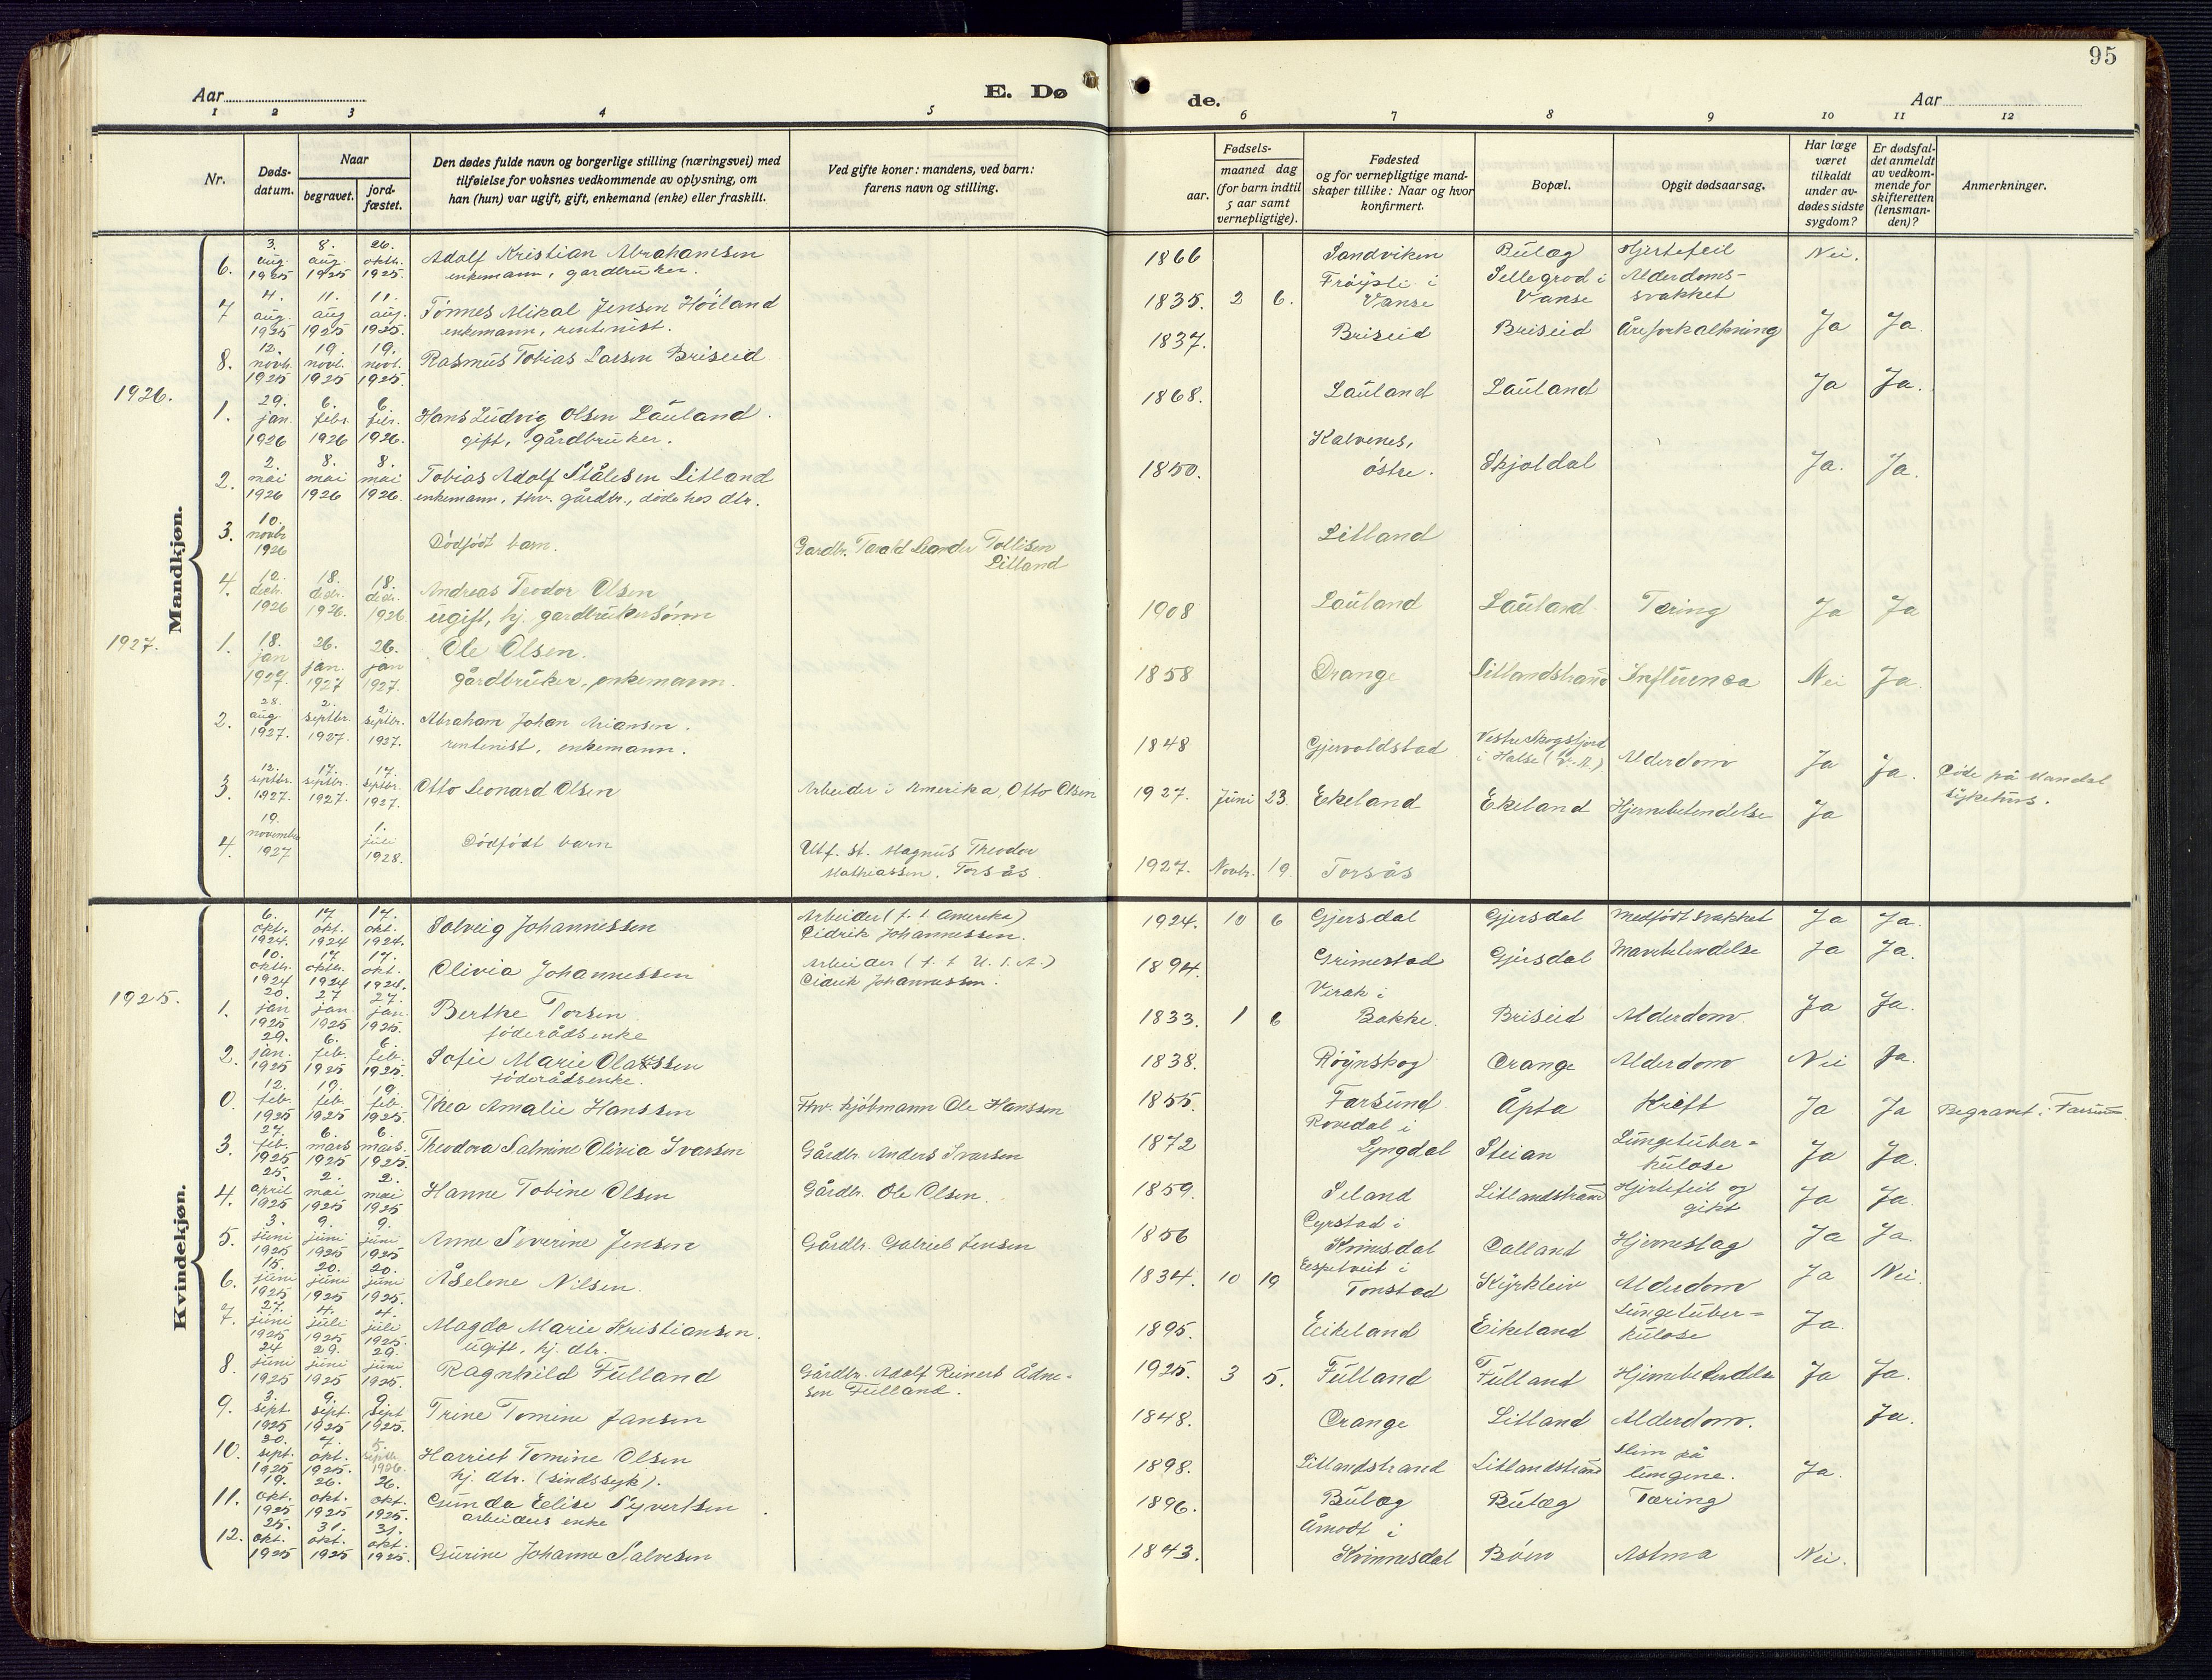 95
Aar
E. Dø
de.
Aar
1 2 3 4 5 6 7 8 9 10 11 12
Nr.
Døds-
datum.
Naar
begravet.
jord-
fæstet.
Den dødes fulde navn og borgerlige stilling (næringsvei) med
tilføielse for voksnes vedkommende av oplysning, om
han (hun) var ugift, gift, enkemand (enke) eller fraskilt.
Ved gifte koner: mandens, ved barn:
farens navn og stilling.
Fødsels-
aar.
maaned dag
(for barn indtil
5 aar samt
vernepligtige).
Fødested
og for vernepligtige mand-
skaper tillike: Naar og hvor
konfirmert.
Bopæl.
Opgit dødsaarsag.
Har læge
været
tilkaldt
under av-
dødes sidste
sygdom?
Er dødsfal-
det anmeldt
av vedkom-
mende for
skifteretten
(lensman-
den)?
Anmerkninger.
Mandkjøn.
6. 3. aug. 1925 8. aug. 1925 26. oktb. 1925. Adolf Kristian Abrahamsen 1866 Sandviken Bulæg Hjertefeil Nei.
enkemann, gardbruker.
7 4. aug. 1925 11. aug 1925 11. aug. 1925. Tønnes Mikal Jensen Høiland 1835. 2 6. Frøysti i Vanse Sellegrod i Vanse Alderdoms-svakhet
enkemann, rentenist.
8. 12. novb. 1925 19. novb. 1925 19. novb. 1925. Rasmus Tobias Larsen Briseid 1837. Briseid Briseid Åreforkalkning Ja Ja
1926.
1. 29. jan. 1926 6. febr. 1926 6. febr. 1926. Hans Ludvig Olsen Lauland. 1868. Lauland Lauland Ja Ja.
gift, gårdbruker.
2. 2. mai 1926 8. mai 1926 8. mai 1926. Tobias Adolf Stålesen Litland 1850. Kalvenes, østre. Skjoldal Ja. Ja.
enkemann, fhv. gårdbr., døde hos dtr.
3. 10. novbr 1926 Dødfødt barn. Gardbr. Tarald Leander Tollisen Litland Litland
4. 12. decb. 1926 18. decbr. 1926. 18. decbr. 1926 Andreas Teodor Olsen 1908 Lauland Lauland Tæring Ja Ja
ugift, hj. gardbrukersønn
1927.
1. 18. jan 1927. 26. jan. 1927 26. jan 1927. Ole Olsen. 1858 Drange Litlandstrand Influensa Nei Ja.
gårdbruker, enkemann.
2. 28. aug. 1927. 2. septbr. 1927. 2. septbr. 1927. Abraham Johan Ariansen. 1848 Gjervoldstad Vestre Skogsfjord i Halse (V. A.) Alderdom Ja Ja. Døde på Mandal sykehus.
rentenist, enkemann.
3. 12. septbr. 1927. 17. septbr. 1927 17. septbr. 1927. Otto Leonard Olsen Arbeider i Amerika, Otto Olsen 1927. Juni 23. Ekeland Ekeland Hjernebetendelse Ja
4. 19. november 1927 1. juli 1928. Dødfødt barn Utf. st. Magnus Theodor Mathiassen. Torsås. 1927. Novbr. 19. Torsås
Kvindekjøn.
6. okt. 1924. 17 okt. 1924 17. okt. 1924. Solveig Johannessen Arbeider (f. t. Amerika) Didrik Johannessen. 1924. 10 6 Gjersdal Gjersdal Medfødt svakhet Ja Ja.
10. oktb. 1924 17 oktb. 1924 17. okt. 1924. Olivia Johannessen Arbeider (f. t. U. S. A.) Didrik Johannessen. 1894. Grimestad Gjersdal Mavebetendelse Ja Ja.
1925.
1. 20. jan 1925 27 jan. 1925 27. jan. 1925. Berthe Torsen 1833. 1 6 Virak i Bakke. Briseid Alderdom Ja Ja.
føderådsenke
2. 29. jan. 1925 6. feb. 1925 6. feb. 1925. Sofie Marie Olaussen 1838. Røynskog Drange Alderdom Nei Ja.
føderådsenke.
0. 12. feb. 1925 19. feb. 1925 19. feb. 1925. Thea Amalie Hanssen Fhv. kjøbmann Ole Hanssen 1855. Farsund Åpta Kreft Ja Ja Begravet i Farsund
3. 27. feb. 1925 6. mars 1925 6. mars. 1925. Theodora Salmine Olivia Ivarsen Gårdbr. Anders Ivarsen 1872 Rovedal i Lyngdal Steian Lungetuber-kulose Ja Ja.
4. 25. april 1925 2. mai 1925 2. mai 1925 Hanne Tobine Olsen Gårdbr. Ole Olsen. 1859. Seland Litlandstrand Hjertefeil og gikt Ja Ja.
5. 3. juni 1925 9. juni 1925 9. juni 1925 Anne Severine Jensen Gårdbr. Gabriel Jensen 1856 Dyrstad i Kvinesdal Dalland Hjerneslag Ja Ja.
6. 15. juni 1925 20. juni 1925 20. juni 1925. Åselene Nilsen. 1834. 10 19 Espetveit i Tonstad Kyrkleiv Alderdom Ja Nei.
7. 27. juni 1925 4. juli 1925 4. juli 1925. Magda Marie Kristiansen. 1895. Eikeland Eikeland Lungetuber-kulose Ja.
ugift, hj. dtr.
8. 24 juni 1925 29. juni 1925 29. juni 1925. Ragnhild Fulland Gårdbr. Adolf Reinert Ådne-sen Fulland. 1925. 3 5. Fulland Fulland Hjernebetendelse Ja Ja.
9. 3. sept 1925 9. sept. 1925 9. sept 1925. Trine Tomine Jansen 1848. Drange Litland Alderdom. Ja.
10. 30. sept. 1925 7. okt. 1925. 5. septb. 1926. Harriet Tomine Olsen 1898. Litlandstrand Litlandstrand Slim på lungene. Ja.
hj. dtr. (sindssyk).
11. 19. okt. 1925 26. okt. 1925 26. okt. 1925. Gunda Elise Syvertsen 1896. Bulæg Bulæg Tæring
arbeiders enke
12. 25. okt. 1925 31. okt. 1925 31. okt. 1925. Gurine Johanne Salvesen 1843. Åmodt i Kvinnesdal Bøen Astma Nei.